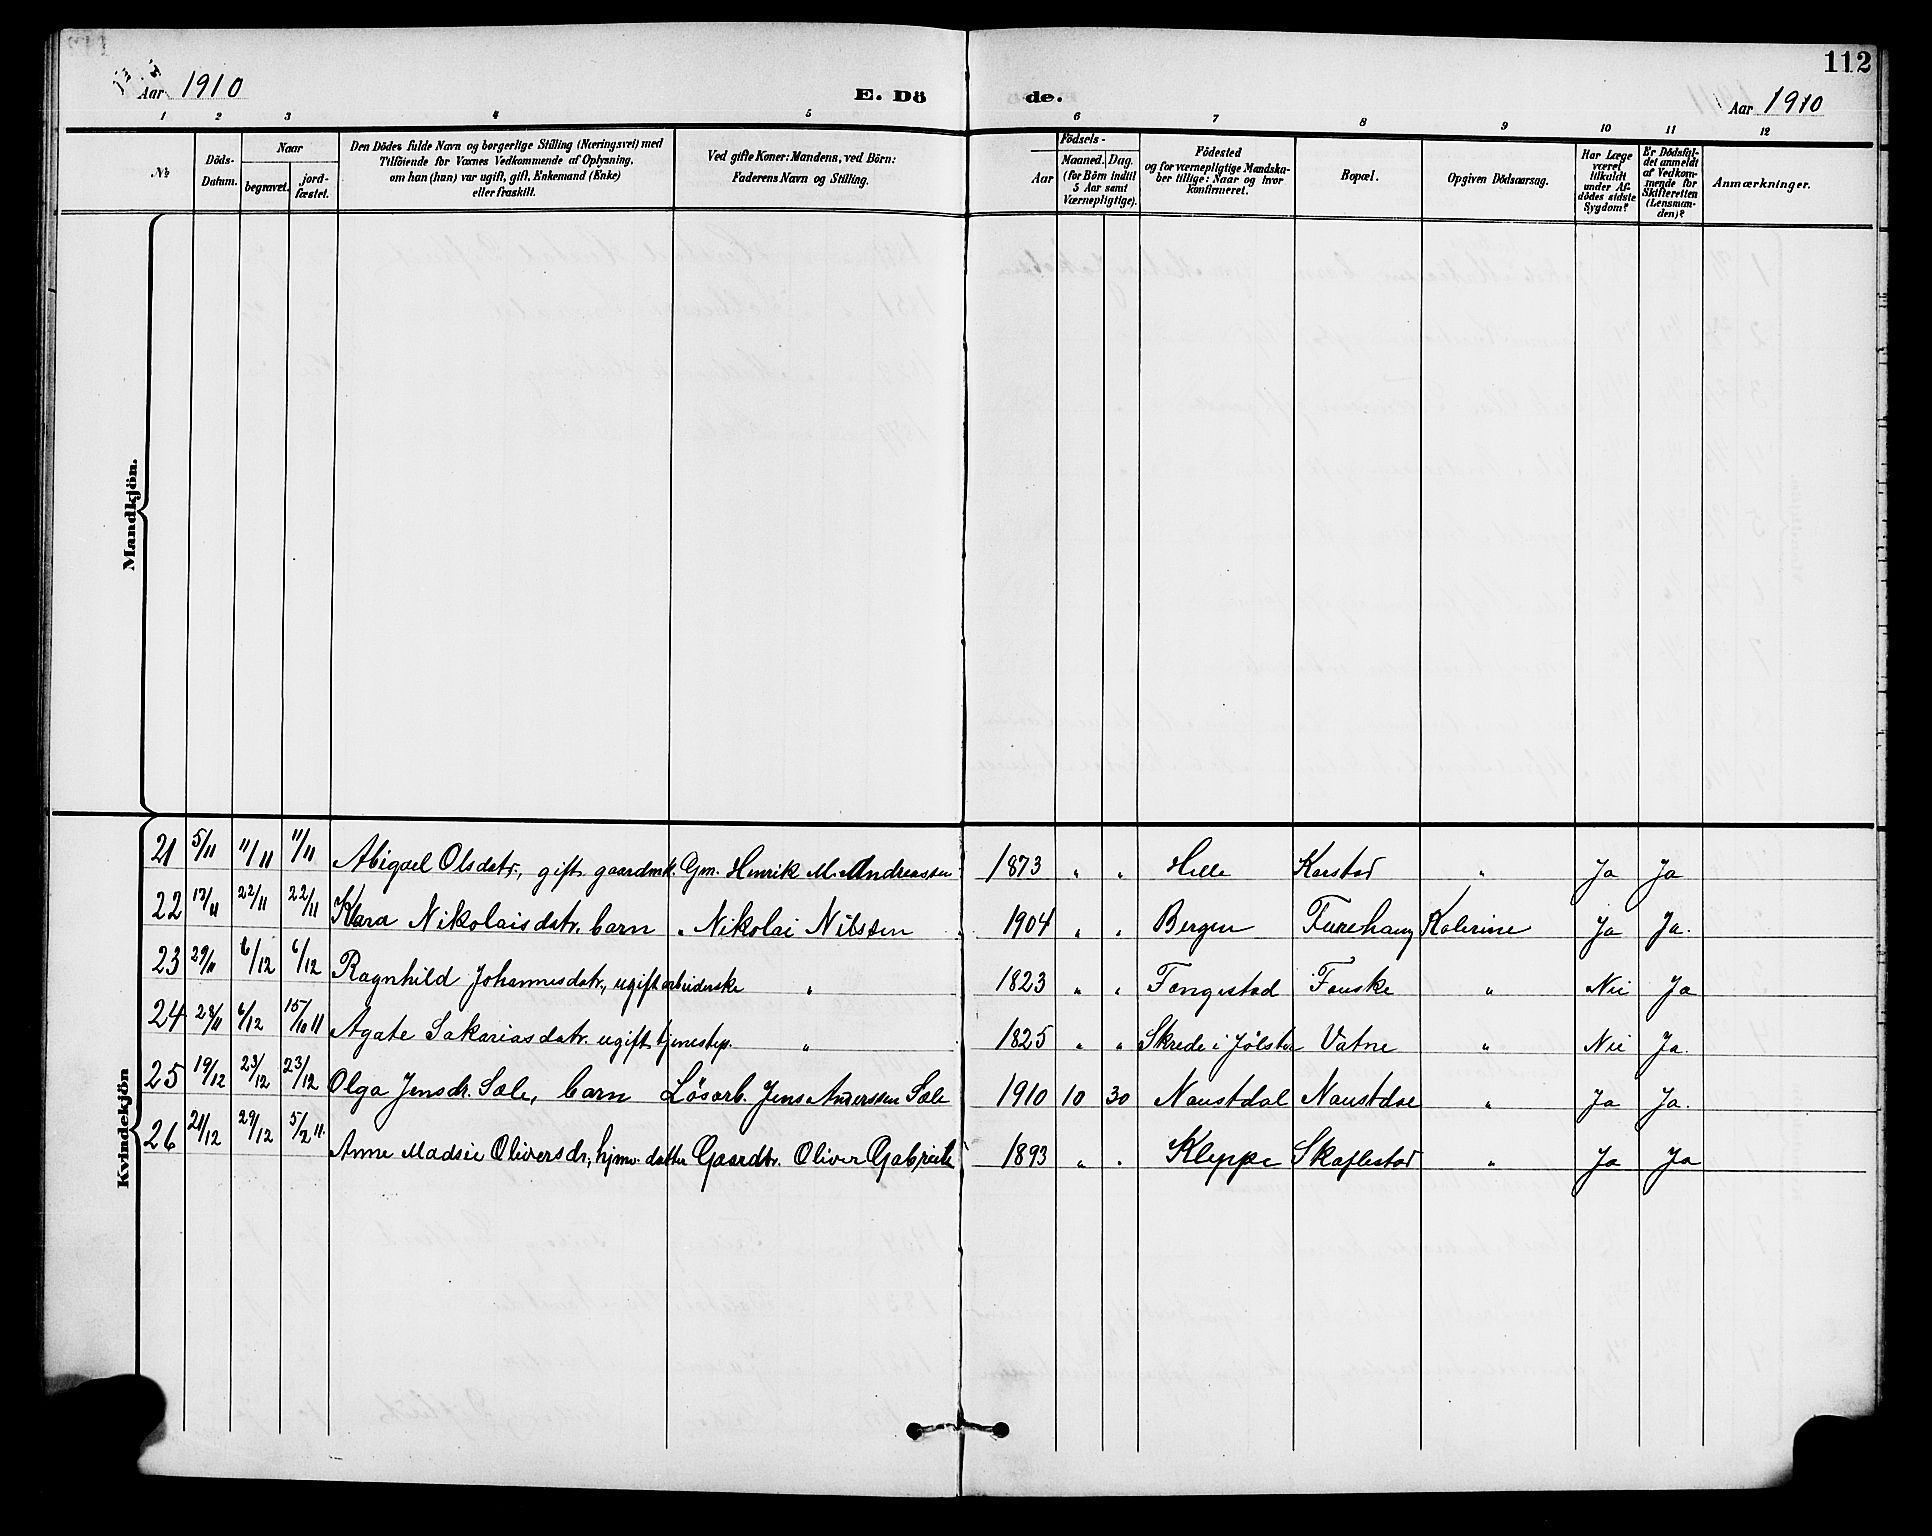 112
Aar 1910
E. Dö
de.
Aar 1910
1 2 3 4 5 6 7 8 9 10 11 12
No
Döds-Datum.
Naar
begravet.
jord-fæstet.
Den Dödes fulde Navn og borgerlige Stilling (Næringsvei) med
Tilföiende for Voxnes Vedkommende af Oplysning,
om han (hun) var ugift, gift, Enkemand (Enke)
eller fraskilt.
Ved gifte Koner: Mandens, ved Börn:
Faderens Navn og Stilling.
Födsels-
Aar
Maaned. Dag.
(for Börn indtil
5 Aar samt
Værnepligtige).
Födested
og for værnepligtige Mandska-
ber tillige: Naar og hvor
Konfirmeret.
Bopæl.
Opgiven Dödsaarsag.
Har Læge
været
tilkaldt
under Af-
dödes sidste
Sygdom?
Er Dödsfal-
det anmeldt
af Vedkom-
mende for
Skifteretten
(Lensman-
den)?
Anmærkninger.
Mandkjön.
Kvindekjön
21 5/11 11/11 11/11 Abigael Olsdatr., gift gaardmk. Gm. Henrik M. Andreassen 1873 " " Helle Karstad " Ja Ja
22 17/11 22/11 22/11 Klara Nikolaisdatr. barn " Nikolai Nilssen 1904 " " Bergen Furehaug Kolerine Ja Ja.
23 29/11 6/12 6/12 Ragnhild Johannesdatr., ugift arbeiderske " 1823 " " Fongestad Fauske " Nei Ja
24 28/11 6/12 15/10 11 Agate Sakariasdatr. ugift tjenestep. " 1825 " " Skrede i Jølster Vatne " Nei Ja.
25 19/12 23/12 23/12 Olga Jensdr. Sæle, barn Løsarb. Jens Anderssen Sæle 1910 10 30 Naustdal Naustdal " Ja Ja.
26 21/12 29/12 5/2 11. Anne Madsie Oliversdr., hjmv. datter Gaardbr. Oliver Gabriels 1893 " " Kleppe Skaflestad " Ja Ja